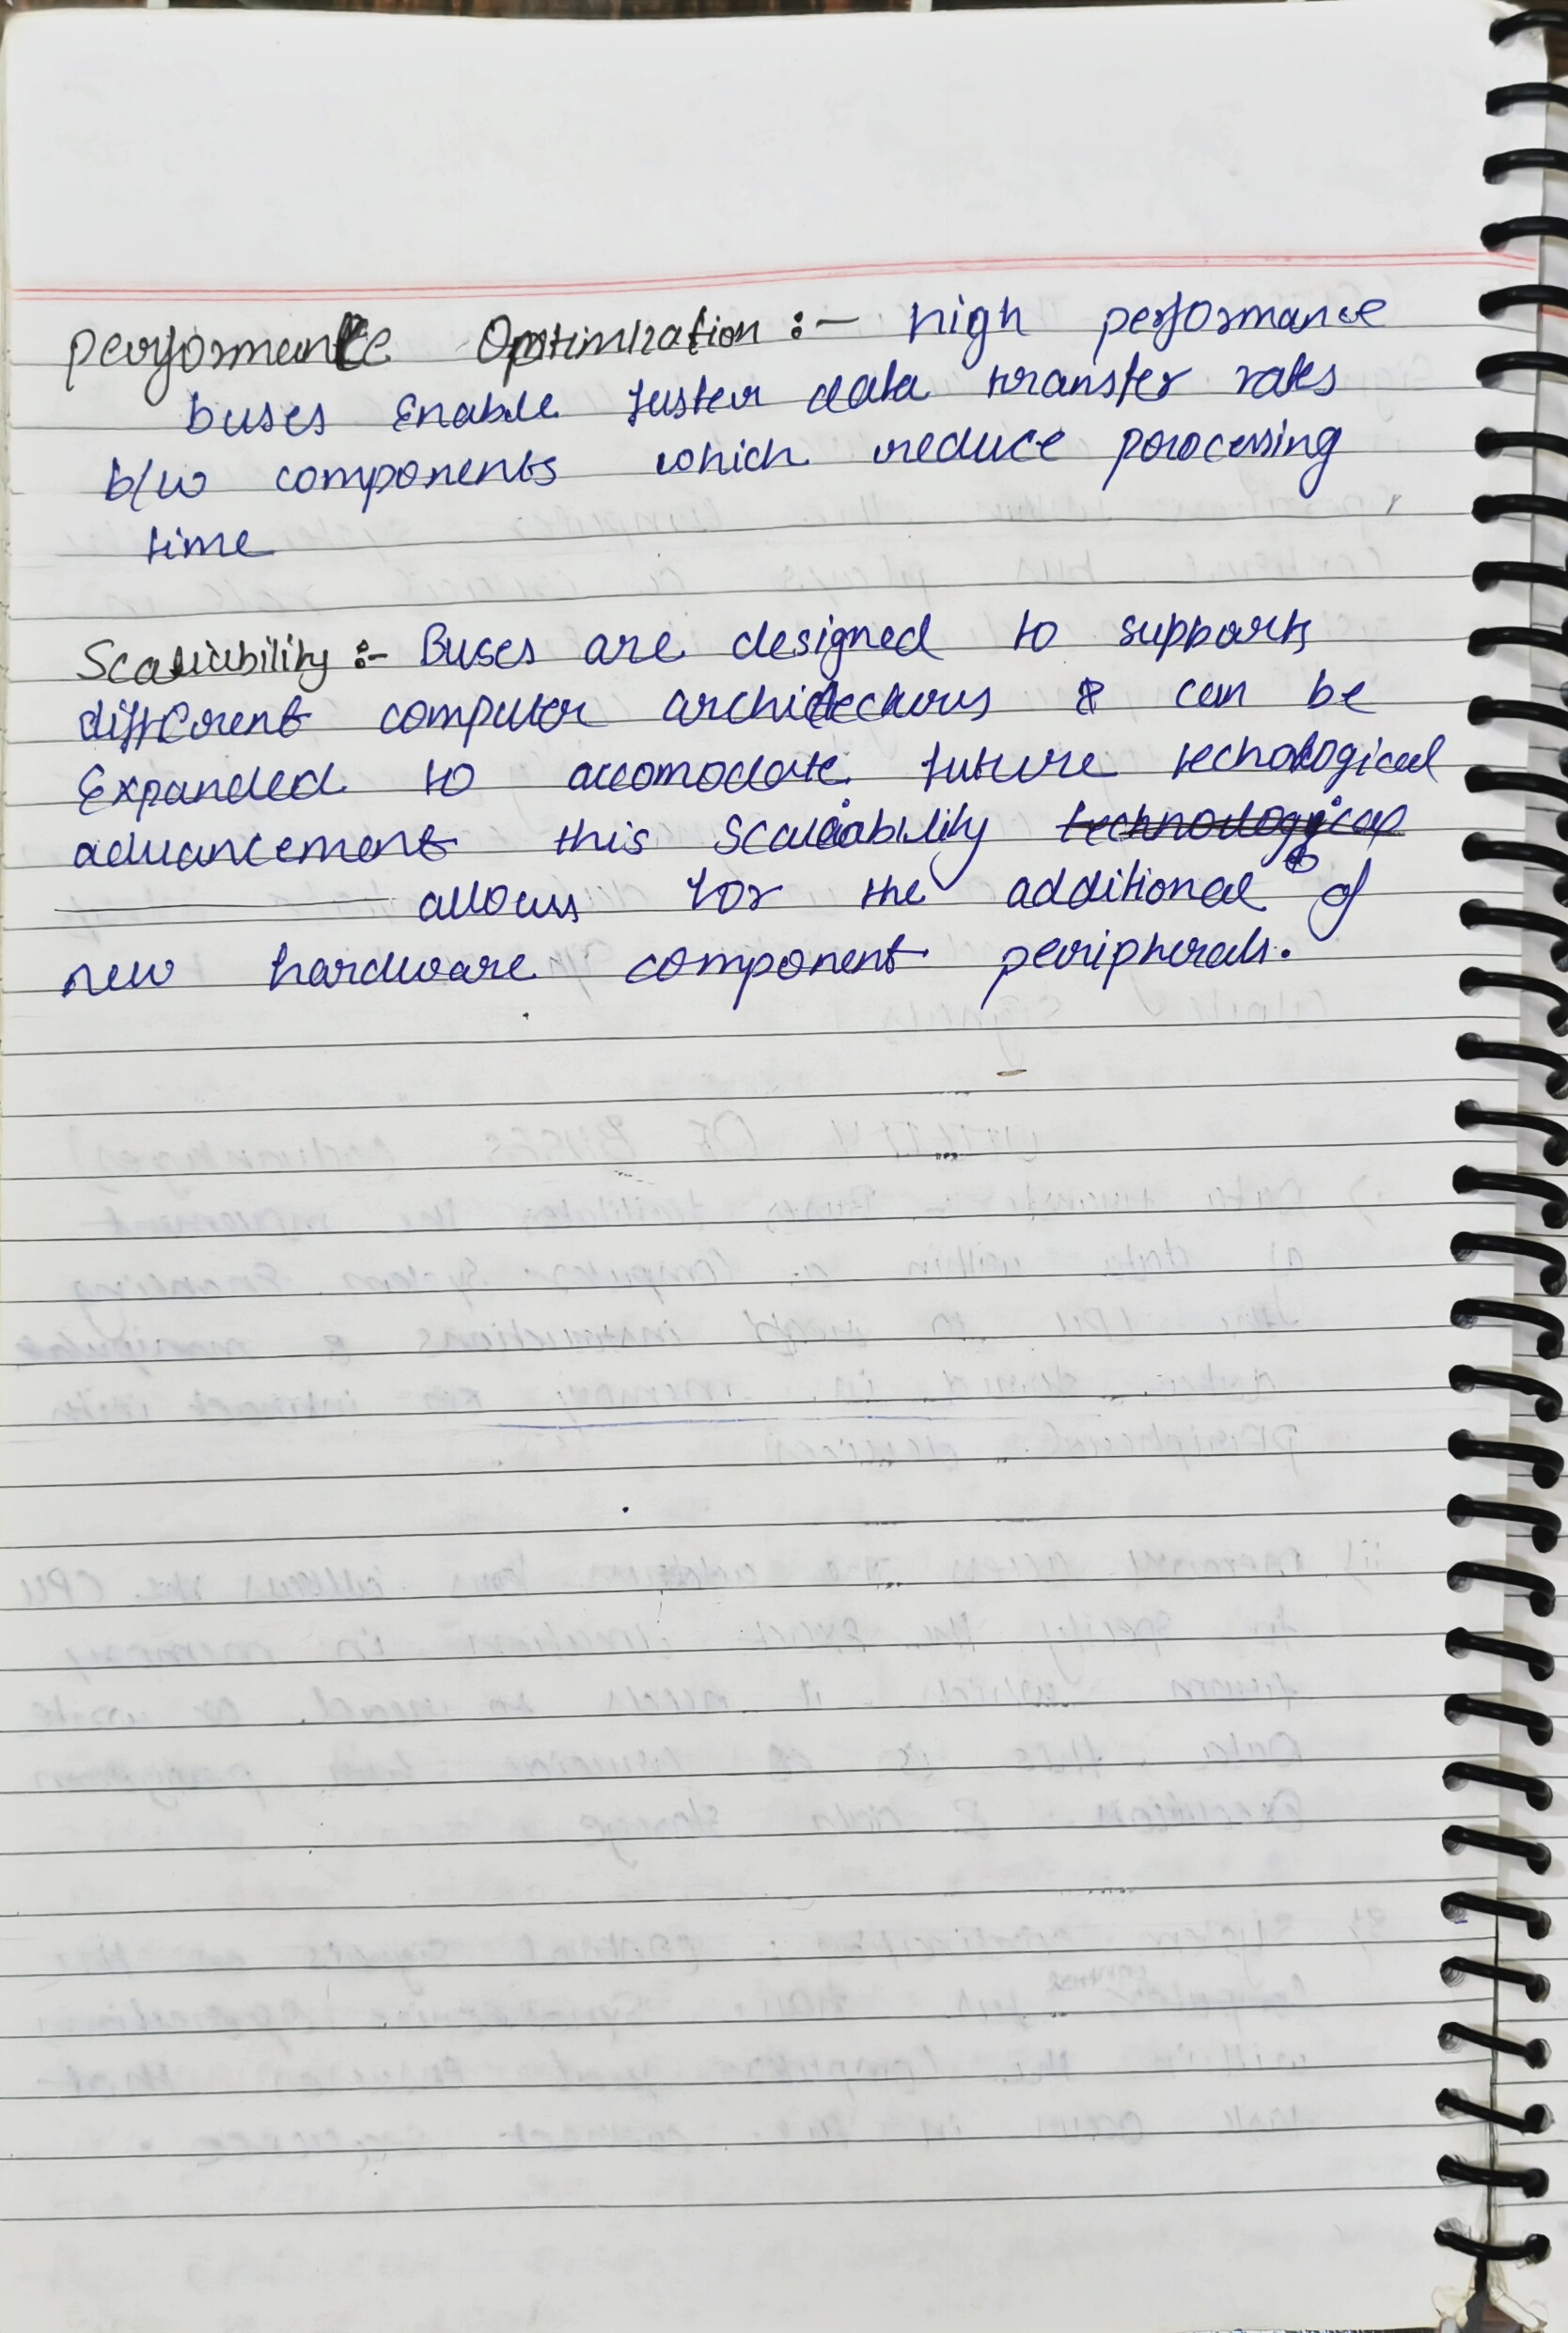 performance Optimization :- high performance
buses Enable faster data transfer rates
b/w components which reduce processing
time
Scalability :- Buses are designed to supports
different computer architectures & can be
Expanded to accomodate future techological
advancement this Scalability technological
allows for the additional of
new hardware component peripherals.